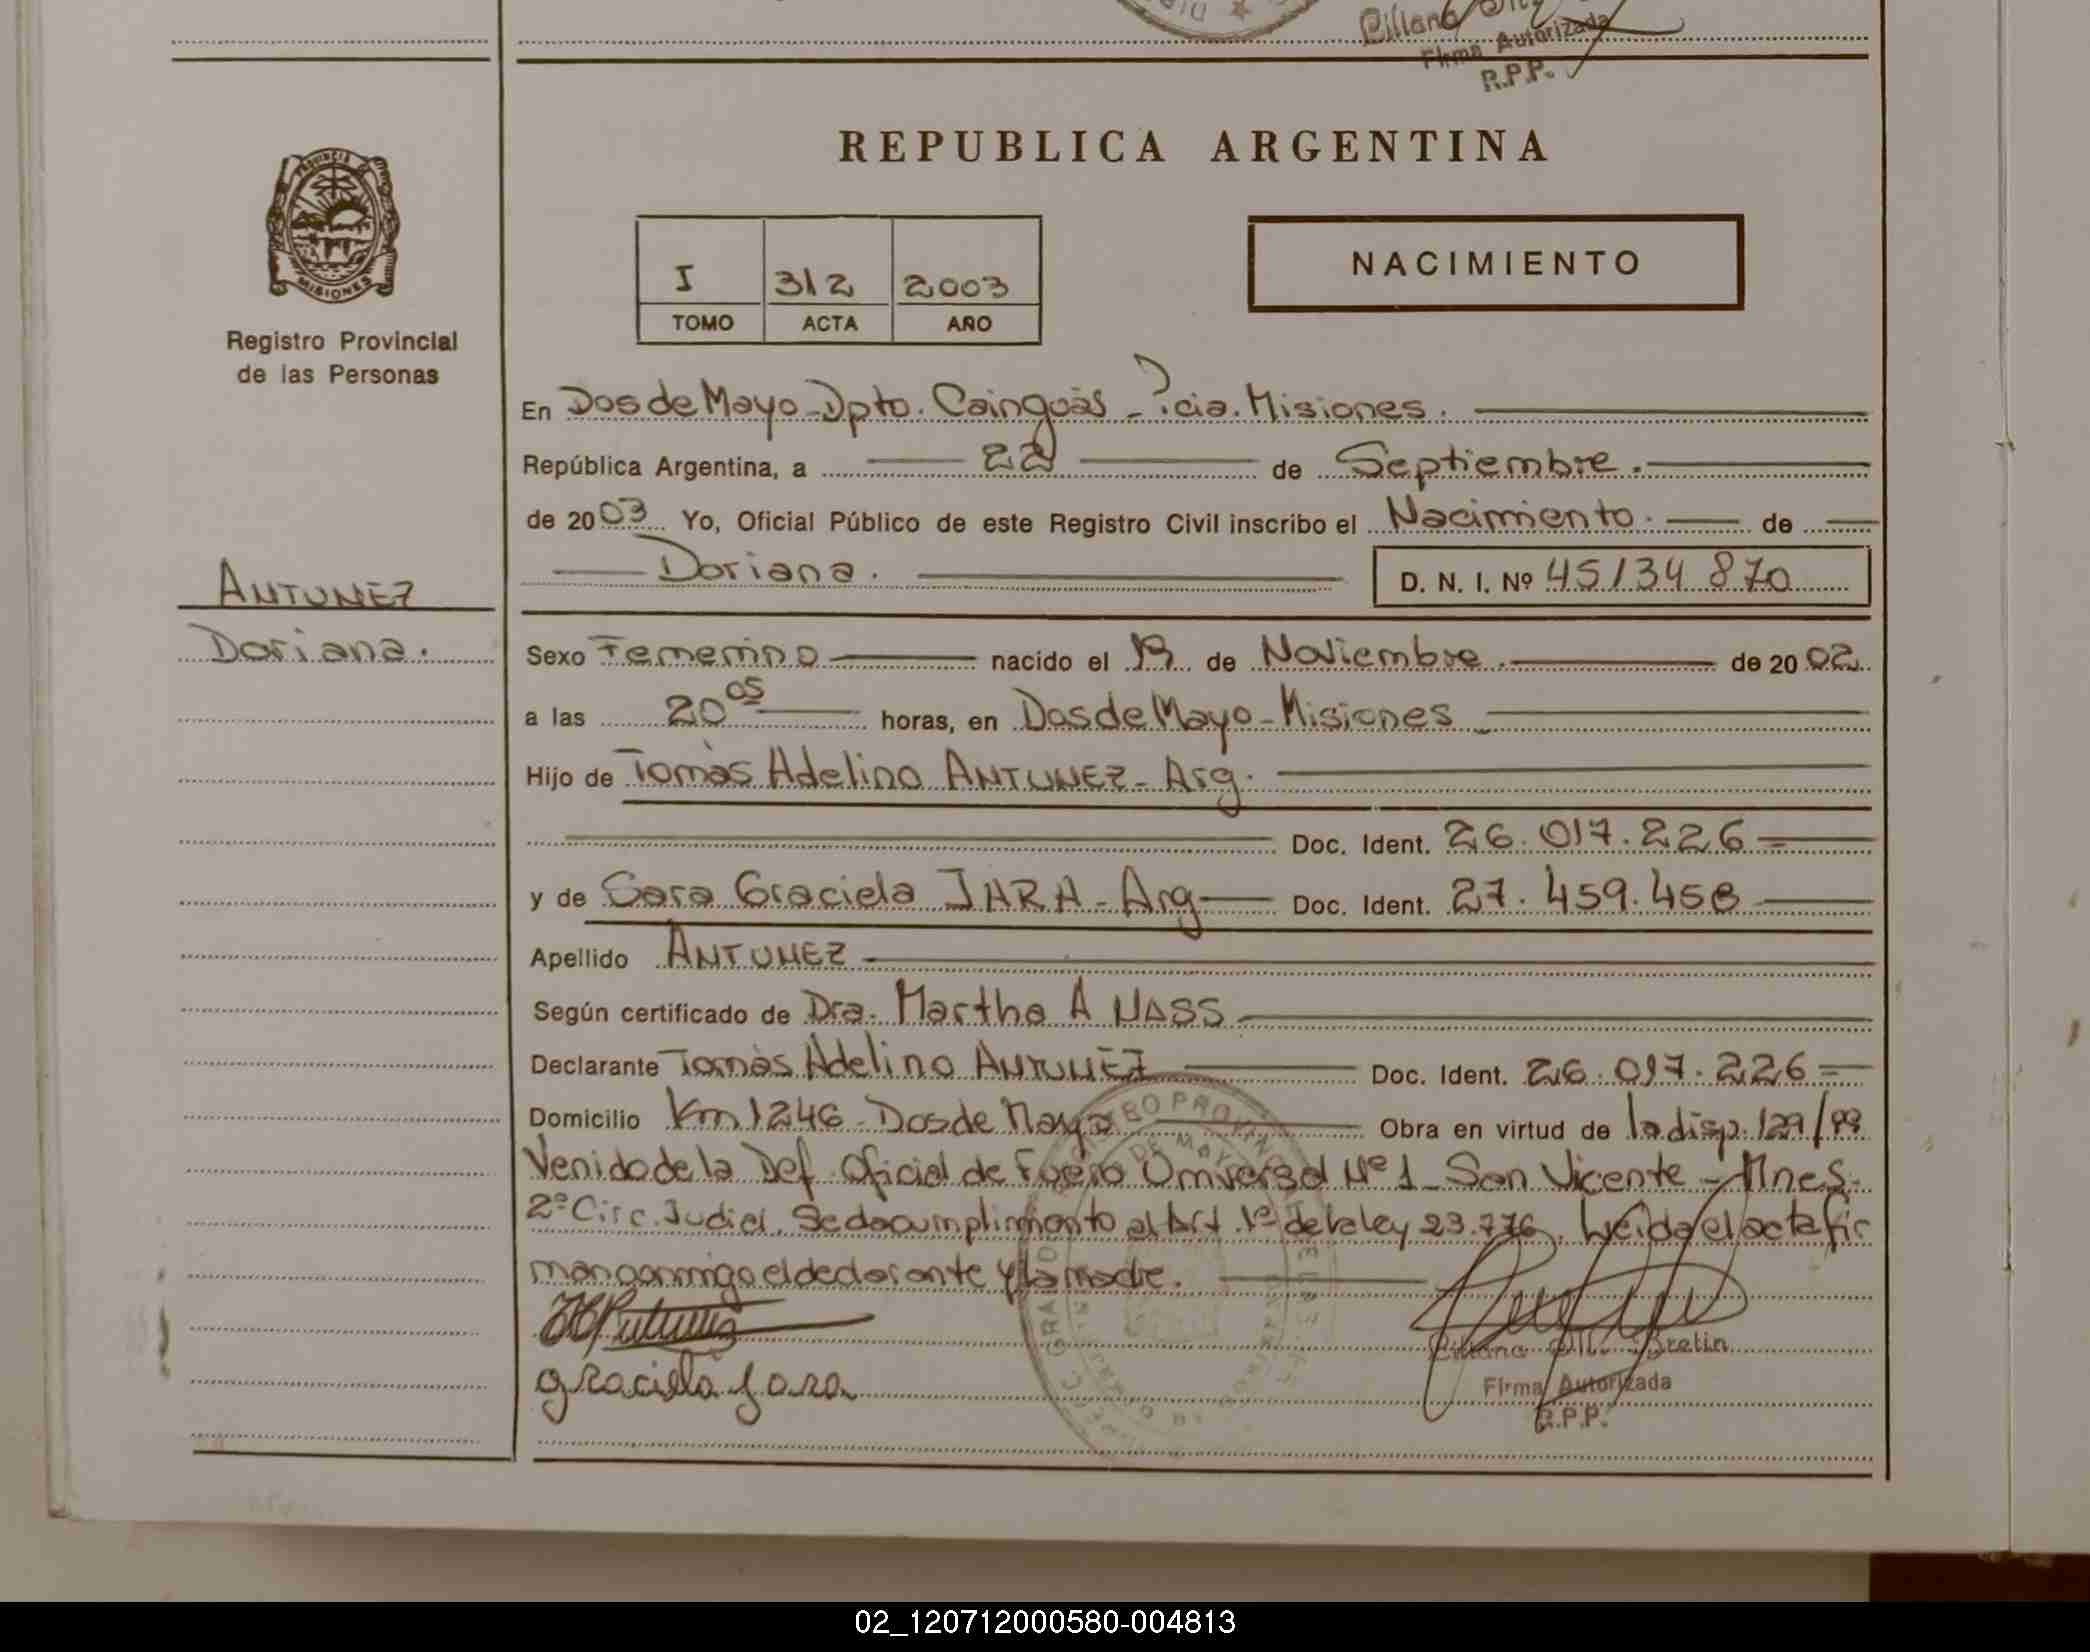 Firma Autorizada
R.P.P.
REPUBLICA ARGENTINA
PROVINCIA
MISIONES
Registro Provincial
de las Personas
I 312 2003
TOMO ACTA AÑO
NACIMIENTO
En Dos de Mayo - Dpto. Cainguás - Pcia. Misiones.
República Argentina, a 22 de Septiembre.
de 2003 Yo, Oficial Público de este Registro Civil inscribo el Nacimiento. de
Doriana. D. N. I. Nº 45134870
ANTUNEZ
Doriana.
Sexo Femenino nacido el 19 de Noviembre de 2002
a las 20 05 horas, en Dos de Mayo - Misiones
Hijo de Tomàs Adelino ANTUNEZ - Arg.
Doc. Ident. 26.017.226
y de Sara Graciela JARA - Arg Doc. Ident. 27.459.458
Apellido ANTUNEZ
Según certificado de Dra. Martha A NASS
Declarante Tomàs Adelino ANTUNEZ Doc. Ident. 26.017.226
Domicilio Km 1246 - Dos de Mayo Obra en virtud de la disp. 129/99
Venido de la Def. Oficial de Fuero Universal Nº 1 - San Vicente - Mnes.
2º Circ. Judicl. Se da cumplimiento al Art. 1º de la ley 23.776. Leida el acta fir
man conmigo el declarante y la madre.
graciela Jara
Firma Autorizada
R.P.P.
02_120712000580-004813